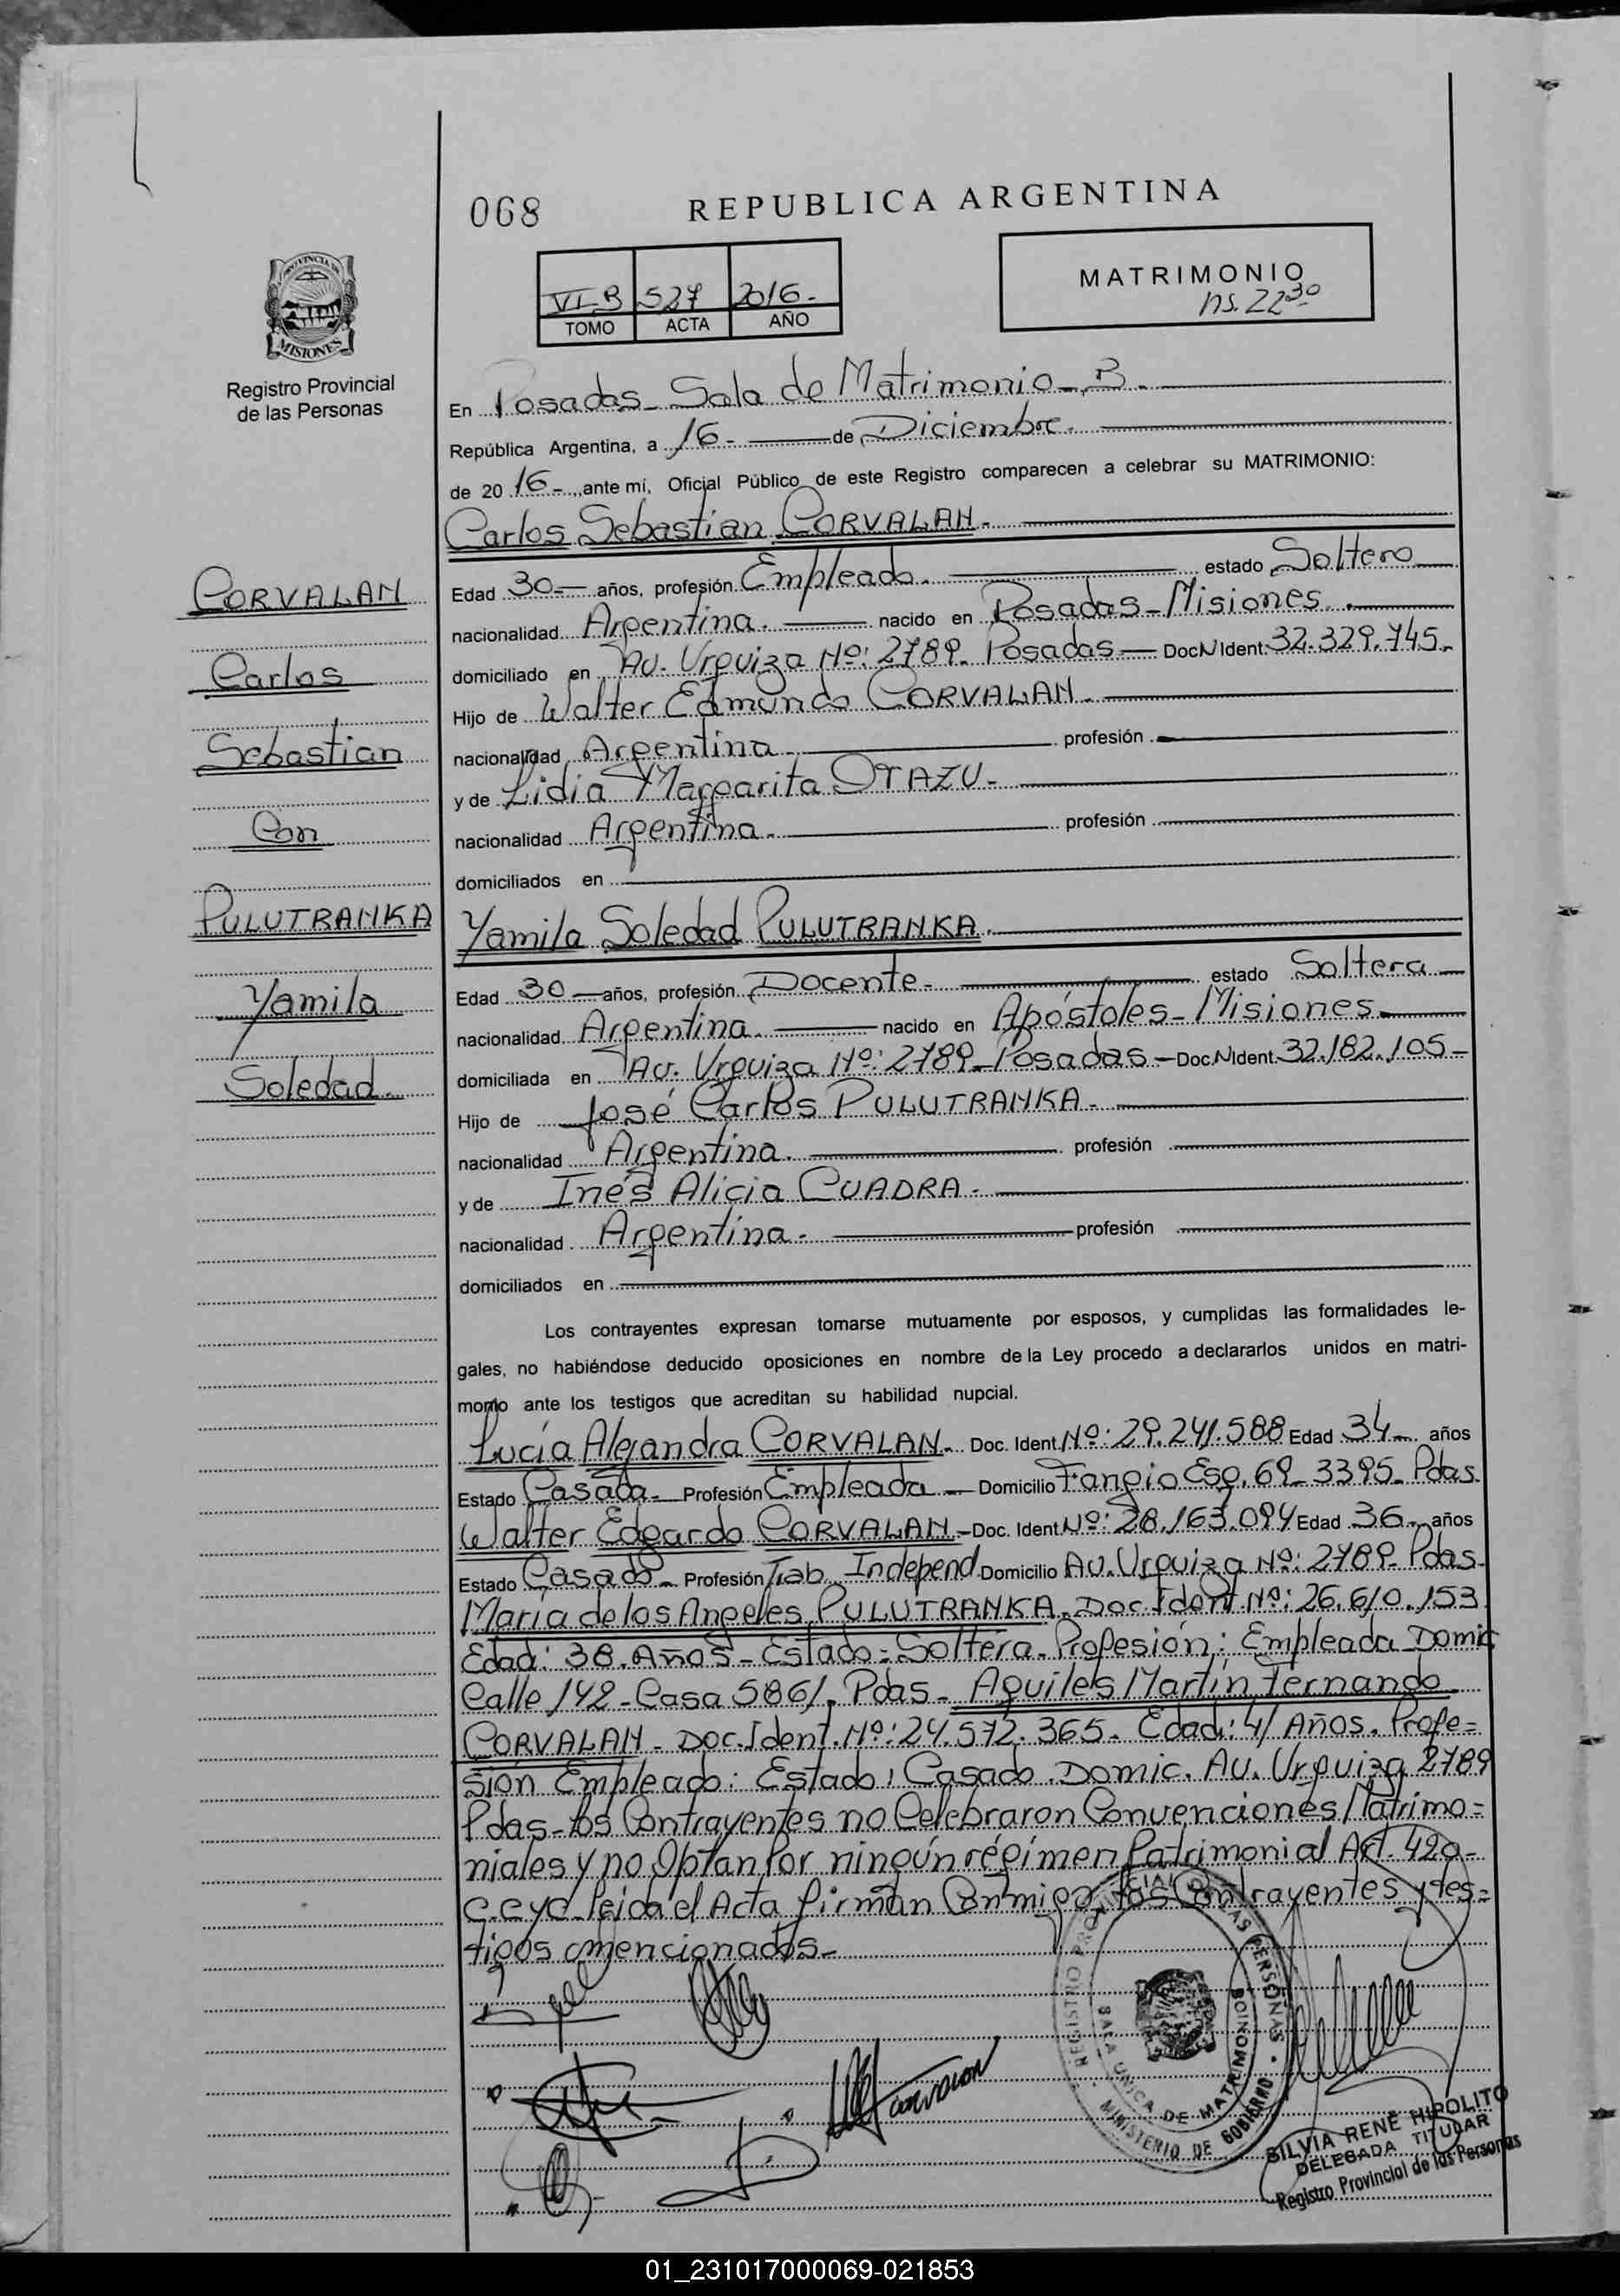 068
REPUBLICA ARGENTINA
VI-B 527 2016.-
TOMO ACTA AÑO
MATRIMONIO
hs. 22 30
PROVINCIA DE
MISIONES
Registro Provincial
de las Personas
En Posadas - Sala de Matrimonio - B.
República Argentina, a 16.- de Diciembre.-
de 20 16.- ,ante mí, Oficial Público de este Registro comparecen a celebrar su MATRIMONIO:
Carlos Sebastian CORVALAN.-
Edad 30.- años, profesión Empleado.- estado Soltero
nacionalidad Argentina.- nacido en Posadas - Misiones.-
domiciliado en Av. Urquiza Nº: 2789. Posadas - Doc N Ident: 32.329.745.-
Hijo de Walter Edmundo CORVALAN.-
nacionalidad Argentina.- profesión
y de Lidia Margarita OTAZU.-
nacionalidad Argentina.- profesión
domiciliados en
Yamila Soledad PULUTRANKA.-
Edad 30 - años, profesión Docente.- estado Soltera
nacionalidad Argentina.- nacido en Apóstoles - Misiones.-
domiciliada en Av. Urquiza Nº: 2789 - Posadas - Doc. N Ident. 32.182.105 -
Hijo de José Carlos PULUTRANKA.-
nacionalidad Argentina.- profesión
y de Inés Alicia CUADRA.-
nacionalidad Argentina.- profesión
domiciliados en
CORVALAN
Carlos
Sebastian
Con
PULUTRANKA
Yamila
Soledad.
Los contrayentes expresan tomarse mutuamente por esposos, y cumplidas las formalidades le-
gales, no habiéndose deducido oposiciones en nombre de la Ley procedo a declararlos unidos en matri-
monio ante los testigos que acreditan su habilidad nupcial.
Lucía Alejandra CORVALAN.- Doc. Ident Nº: 29.241.588 Edad 34 - años
Estado Casada.- Profesión Empleada - Domicilio Fangio Esq. 69 - 3395. Pdas.
Walter Edgardo CORVALAN - Doc. Ident Nº: 28.163.094 Edad 36 - años
Estado Casado.- Profesión Trab. Independ Domicilio Av. Urquiza Nº: 2789 - Pdas.
María de los Angeles PULUTRANKA. Doc. Ident. Nº: 26.610.153
Edad: 38. Años - Estado: Soltera. Profesión: Empleada Domic
Calle 142 - Casa 5861. Pdas - Aquiles Martín Fernando
CORVALAN - Doc. Ident. Nº: 24.572.365. Edad: 41 Años. Profe=
sión Empleado: Estado: Casado. Domic. Av. Urquiza 2789
Pdas - los Contrayentes no Celebraron Convenciones Matrimo=
niales y no Optan Por ningún régimen Patrimonial Art. 420 -
C.Cyd leida el Acta firman Conmigo, los Contrayentes y tes=
tigos mencionados -
Corvalan
REGISTRO PROVINCIAL DE LAS PERSONAS
SALA UNICA DE MATRIMONIOS
MINISTERIO DE GOBIERNO
SILVIA RENÉ HIPOLITO
DELEGADA TITULAR
Registro Provincial de las Personas
01_231017000069-021853